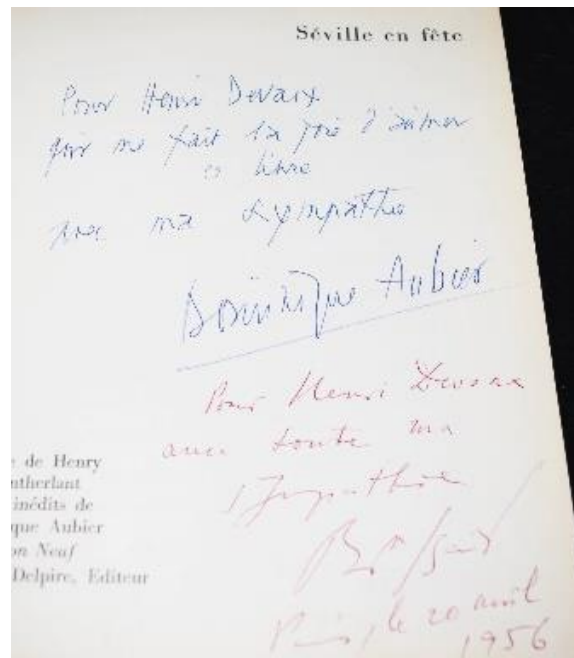 Séville en fête
Pour Henri Devaix
qui me fait la joie d'aimer
ce livre
avec ma sympathie
Dominique Aubier
Pour Henri
avec toute ma
sympathie
Paris, le 20 avril
1956
e de Henry
ntherlant
inédits de
que Aubier
on Neuf
Delpire, Editeur